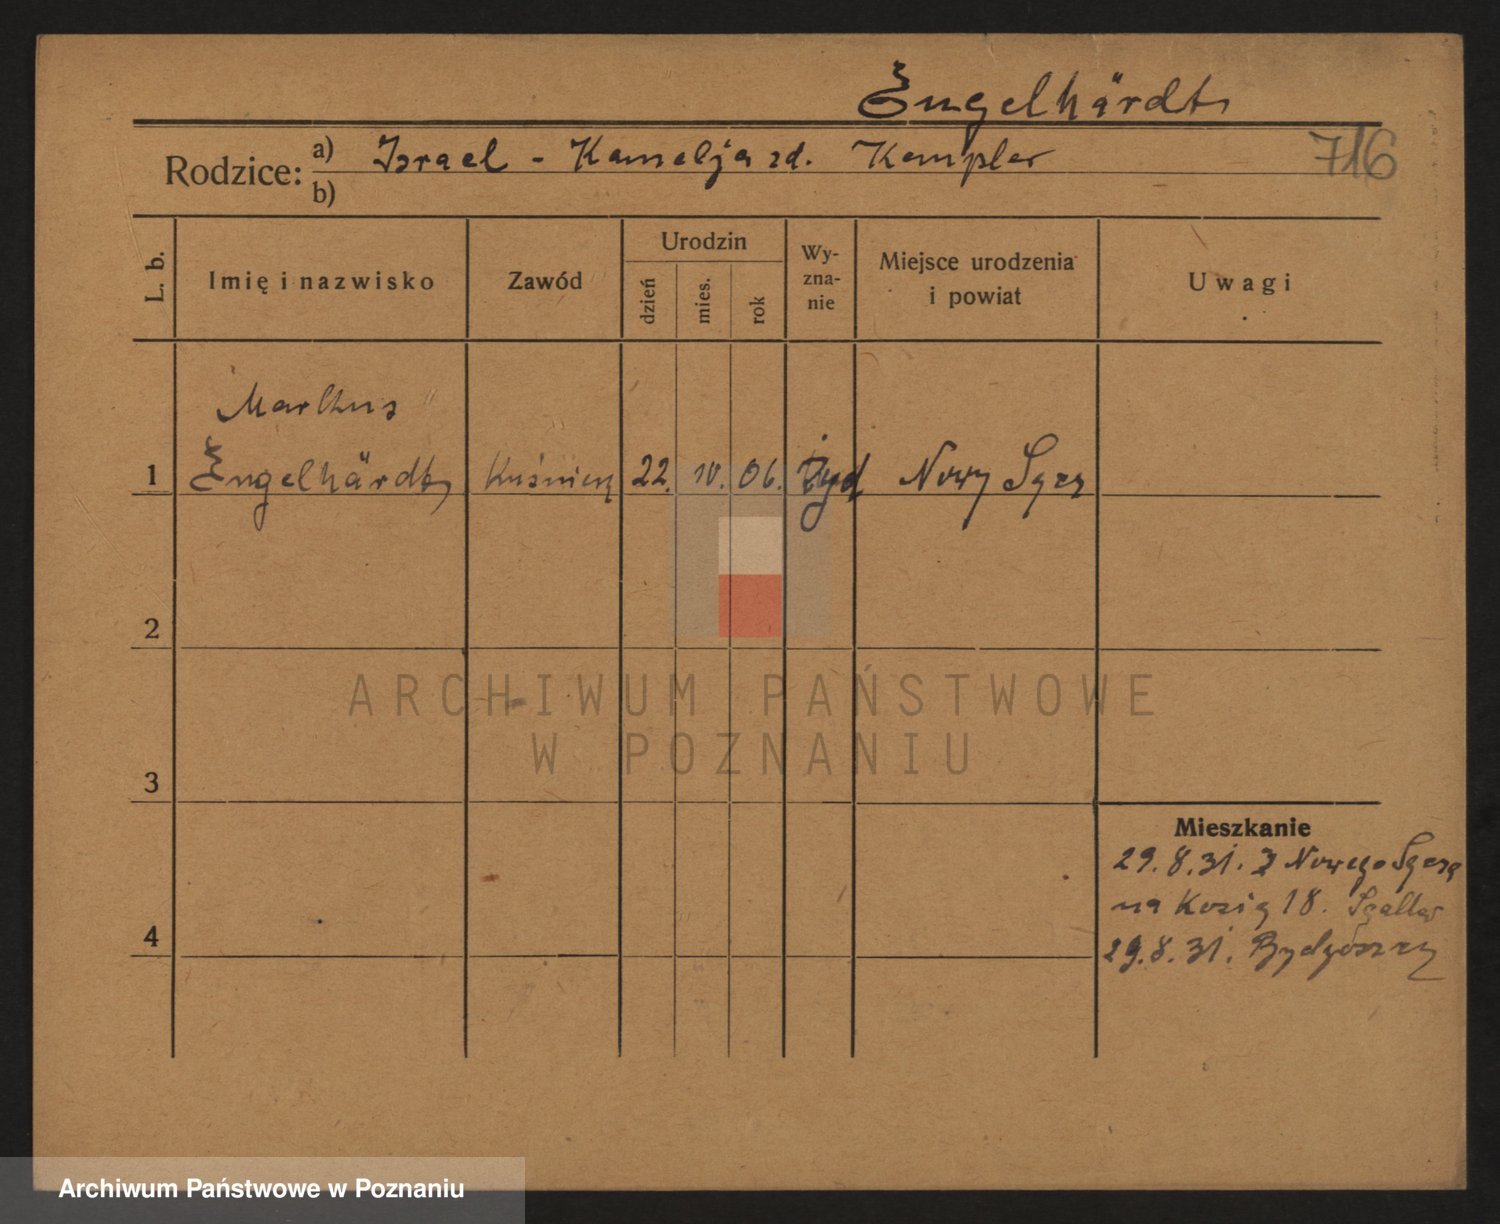 Engelhärdt
716
Rodzice: a) Israel - Kamelja zd. Kempler
b)
L. b.
Imię i nazwisko
Zawód
Urodzin
dzień
mies.
rok
Wy-
zna-
nie
Miejsce urodzenia
i powiat
Uwagi
Markus
1 Engelhärdt Kuśnierz 22. IV. 06. żyd Nowy Sącz
2
3
4
Mieszkanie
29.8.31. z Nowego Sącza
na Kozią 18.
29.8.31. Bydgoszcz
ARCHIWUM PAŃSTWOWE
W POZNANIU
Archiwum Państwowe w Poznaniu